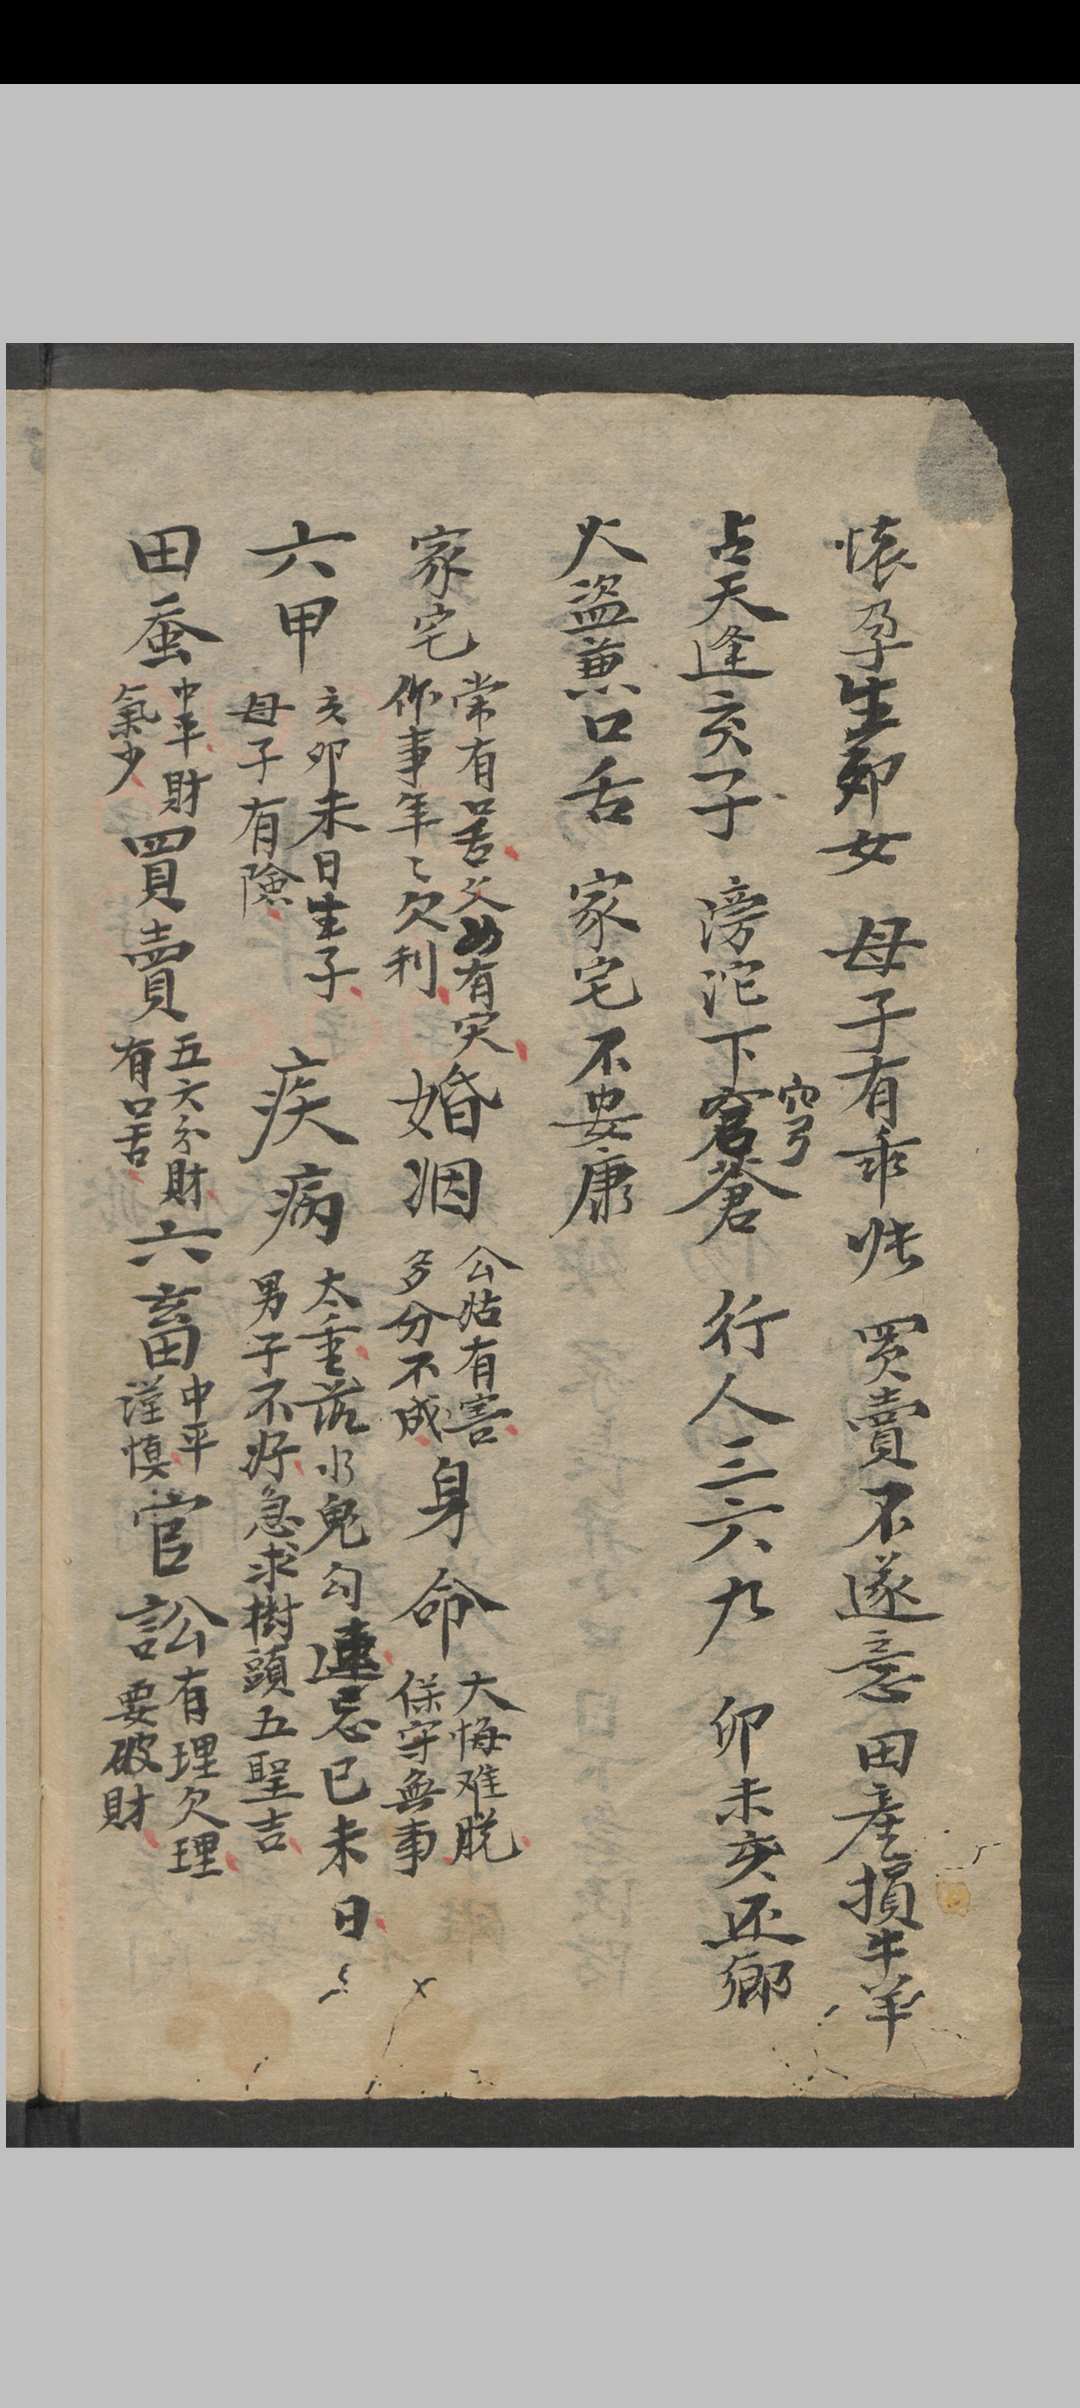 懐孕生郍女 母子有乖张 買賣不遂意 田產損牛羊
占天逢亥子 滂沱下窮蒼 行人三六九 卯未亥还鄉
穹
火盜兼口舌 家宅不安康
家宅 常有口舌父母有灾 作事年〻欠利 婚姻 公姑有害 多分不成 身命 大悔难脱 保守無事
六甲 亥卯未日生子 母子有險 疾病 太重 落水鬼勾連忌已未日 男子不好急求樹頭五聖吉
田蚕 中平財 氣少 買賣 五六分財 有口舌 六畜 中平 謹慎 官訟 有理欠理 要破財